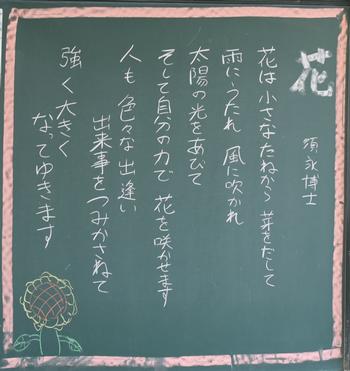 花
須永博士
花は小さなたねから 芽をだして
雨にうたれ 風に吹かれ
太陽の光をあびて
そして自分の力で 花を咲かせます
人も 色々な出逢い
出来事をつみかさねて
強く大きく
なってゆきます